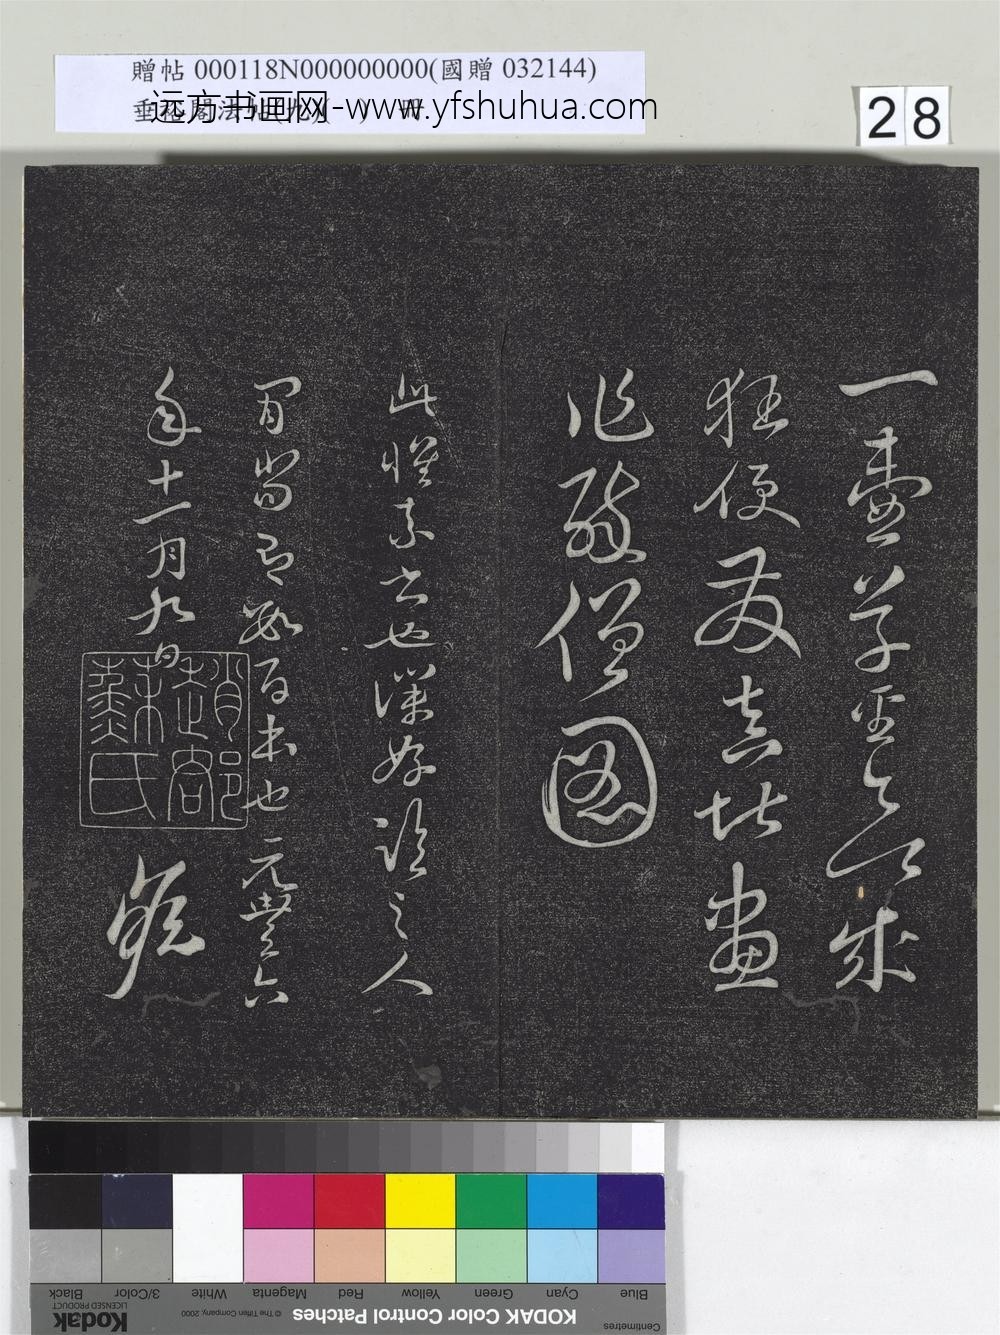 贈帖 000118N000000000(國贈 032144)
远方书画网-www.yfshuhua.com
28
一壺草聖無人
狂便發真堪畫
作醉僧圖
此懷素書也僕好臨之人
間當有數百本也元豐六
年十一月九日
軾
趙郡蘇氏
Blue
Cyan
Green
Yellow
Red
Magenta
White
3/Color
Black
Centimetres
KODAK Color Control Patches
© The Tiffen Company, 2000
Kodak
LICENSED PRODUCT